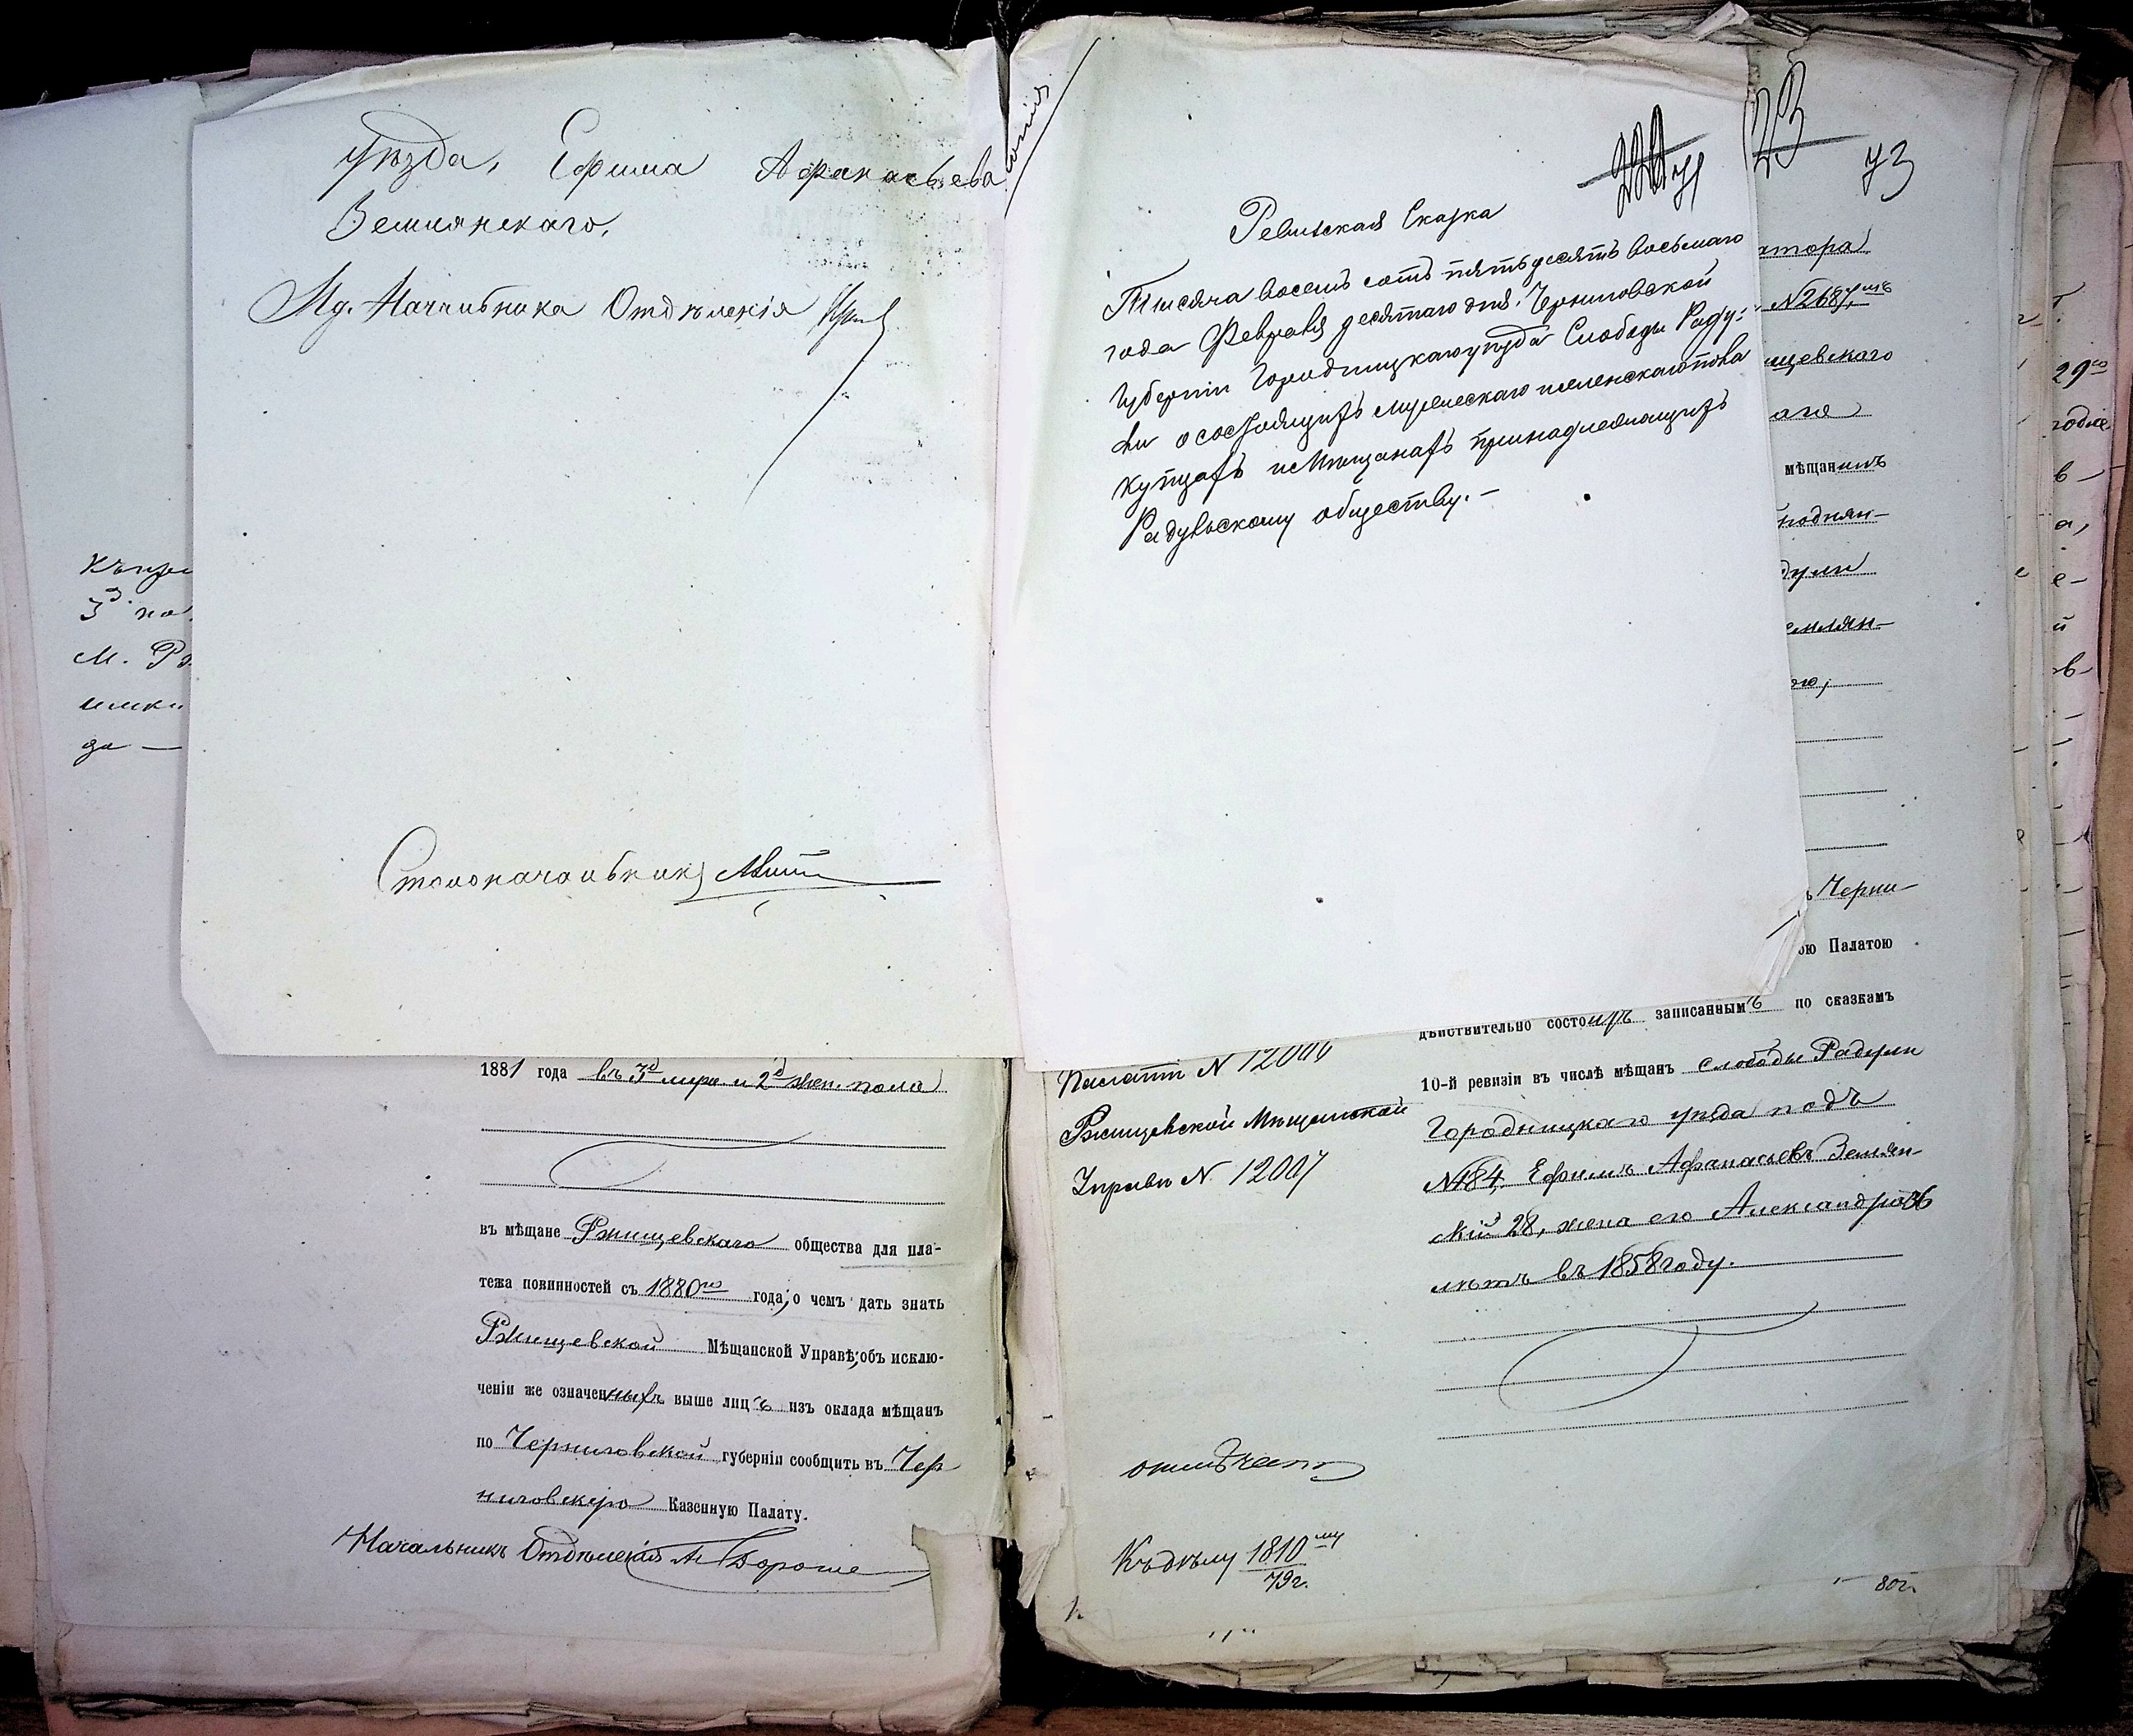 уѣзда, Ефима Афанасьева
Землянскаго,
Нач. Начальника Отдѣленія
Столоначальникъ
къ
3
М. Ра
да —
1881 года въ 3д муж. и 2д жен. пола
въ мѣщане Ржищевскаго общества для пла-
тежа повинностей съ 1880го года; о чемъ дать знать
Ржищевской Мѣщанской Управѣ; объ исклю-
ченіи же означенныхъ выше лицъ изъ оклада мѣщанъ
по Черниговской губерніи сообщить въ Чер
ниговскую Казенную Палату.
Начальникъ Отдѣленія
копія
73
Ревизская Сказка
Тысяча восемь сотъ пятьдесятъ восьмаго
года Февраля десятаго дня. Черниговской
Губерніи Городницкаго уѣзда Слободы Раду-
ли о состоящихъ мужескаго и женскаго пола
купцахъ и Мѣщанахъ принадлежащихъ
Радульскому обществу. –
атора
№ 2687
ищевскаго
аго
мѣщанинъ
поднян-
дули
емлян-
ою;
Черни-
ою Палатою
дѣйствительно состоитъ записаннымъ по сказкамъ
10-й ревизіи въ числѣ мѣщанъ слободы Радули
Городницкаго уѣзда подъ
№184, Ефимъ Афанасьевъ Землян-
скій 28, жена его Александра 36
лѣтъ въ 1858 году.
Палаты № 12006
Ржищевской Мѣщанской
Управы № 12007
отмѣчено
Къ дѣлу 1810му
79г.
80г.
29го